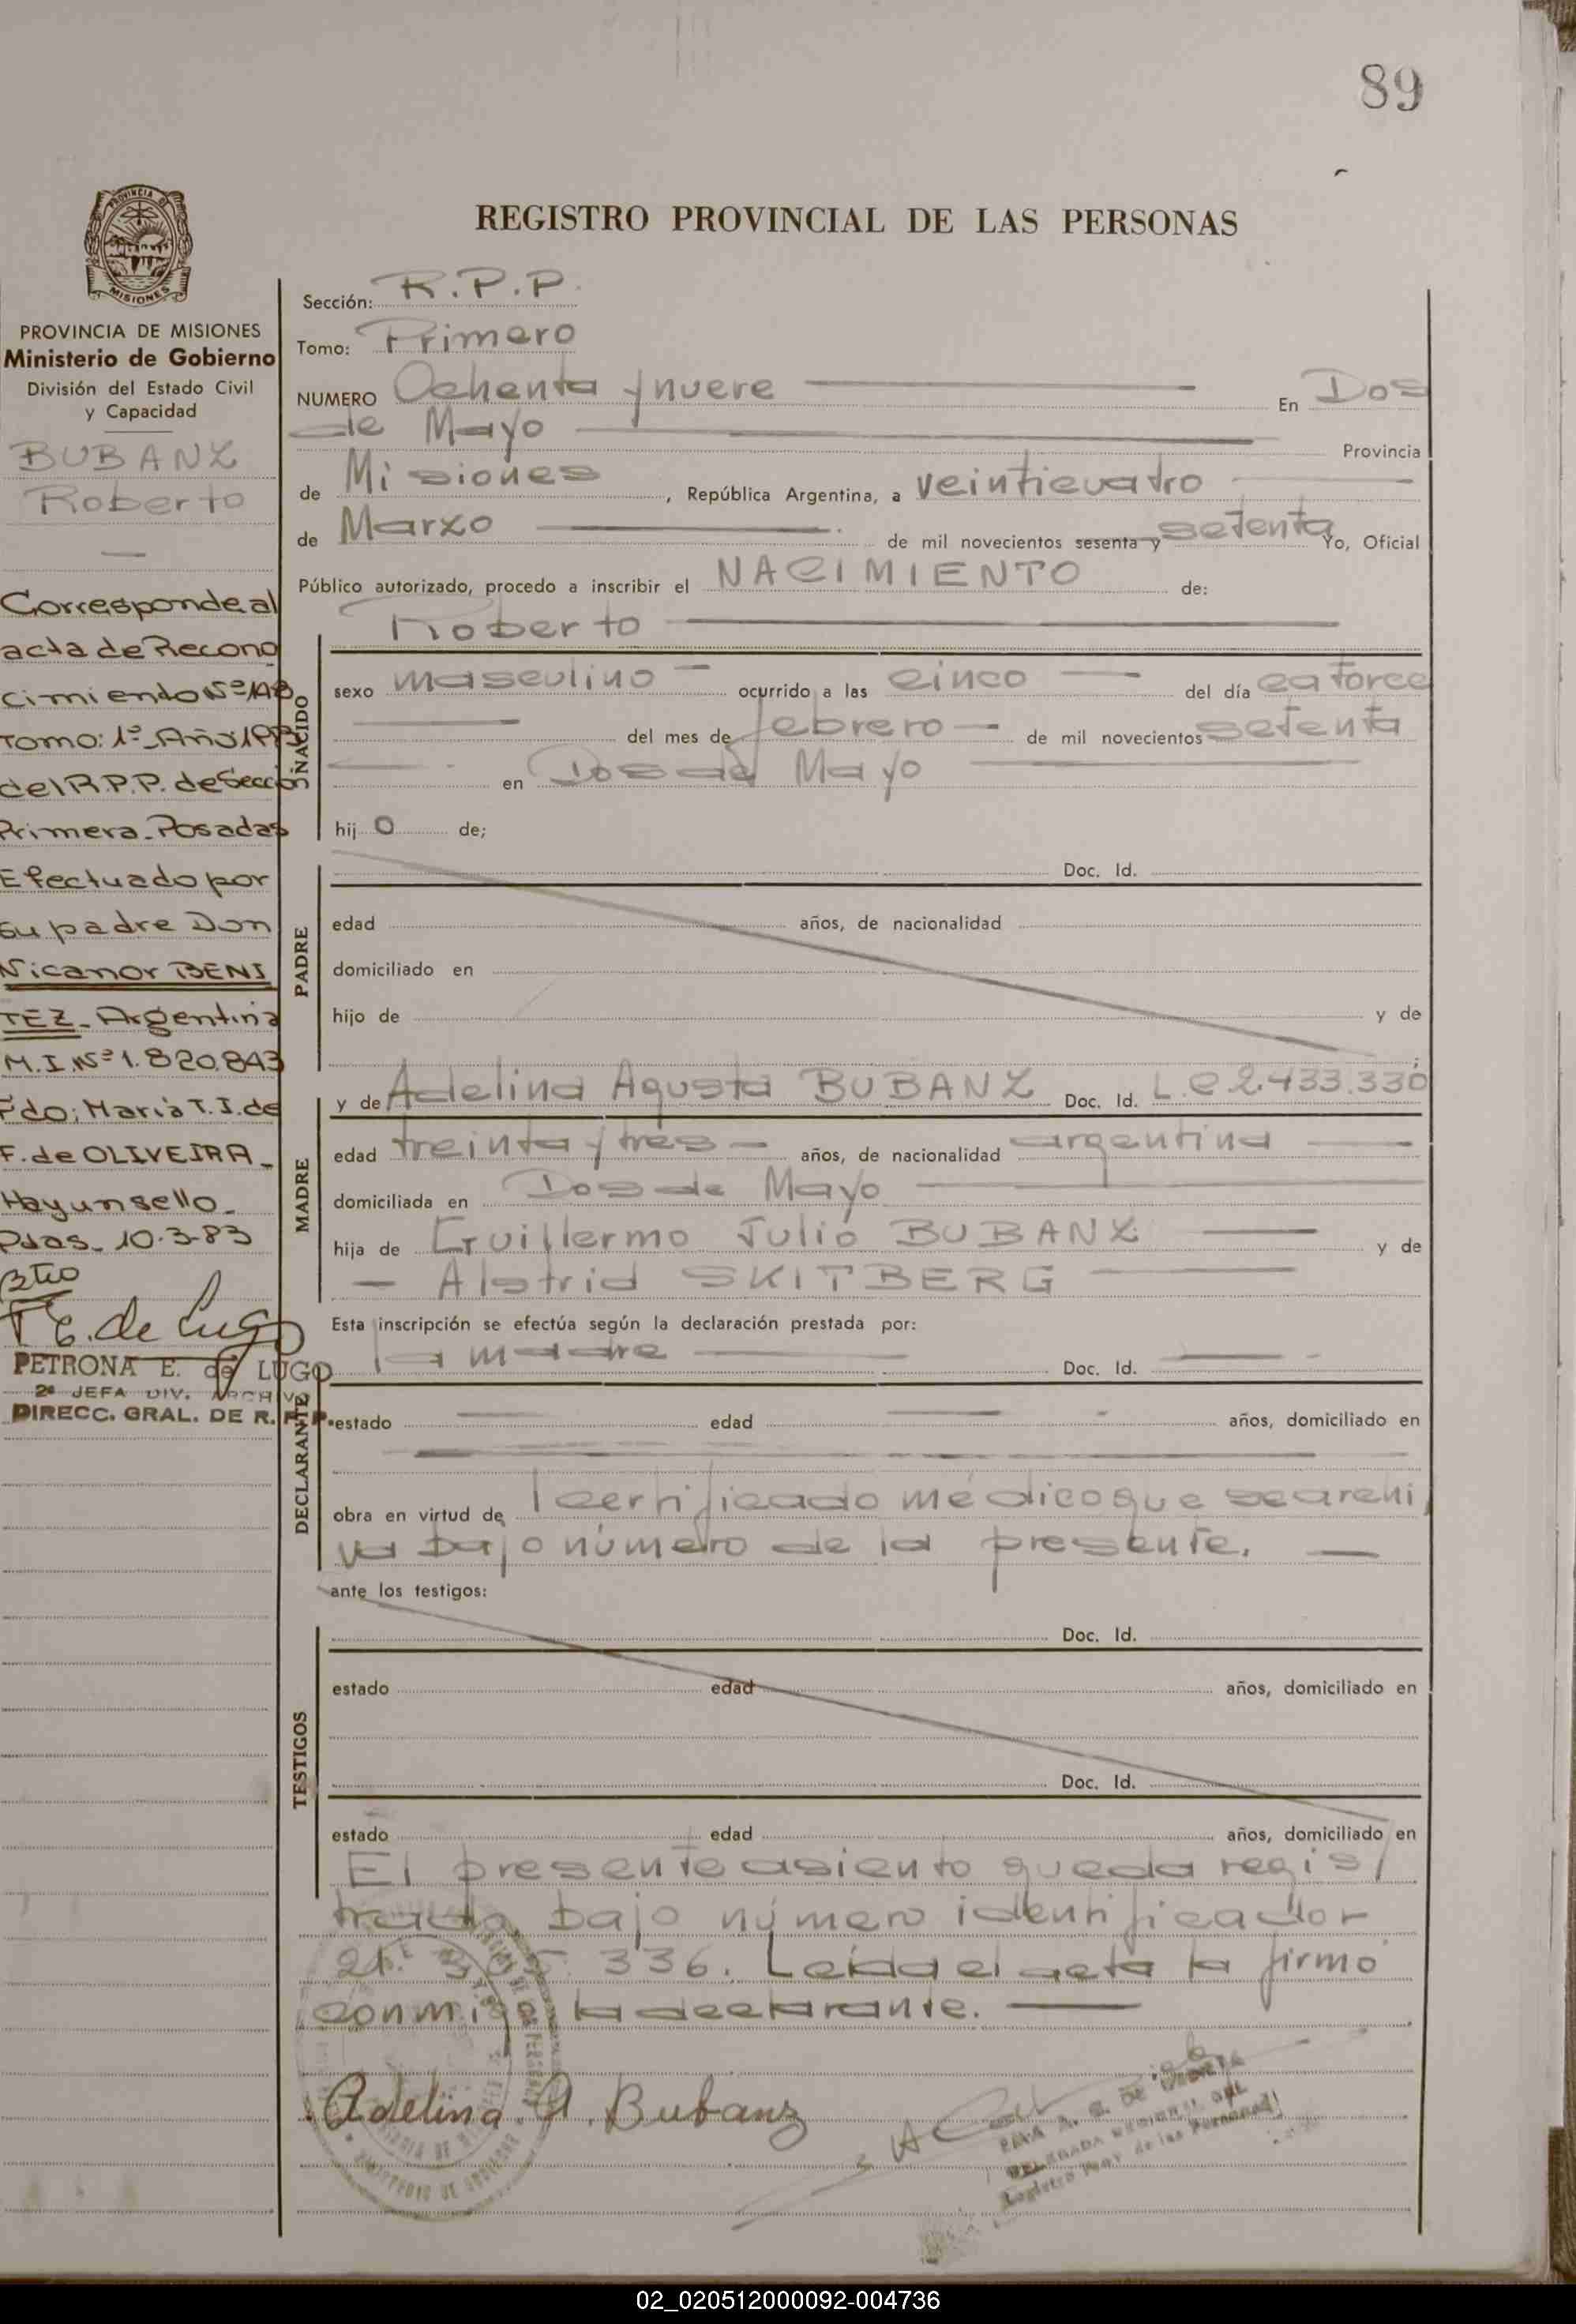 89
REGISTRO PROVINCIAL DE LAS PERSONAS
PROVINCIA DE MISIONES
Ministerio de Gobierno
División del Estado Civil
y Capacidad
BUBANZ
Roberto
Corresponde al
acta de Recono
cimiento Nº
Tomo: 1º Año
del R.P.P. de Sección
Primera. Posadas
Efectuado por
su padre Don
Nicanor BENI
TEZ. Argentina
M.I. Nº 1.820.843
Fdo; Maria T. I. de
F. de OLIVEIRA.
Hay un sello.
Pdas. 10.3-83
E. de Lugo
PETRONA E. de LUGO
2ª JEFA DIV. ARCHIVO
DIRECC. GRAL. DE R. P. P.
Sección: R.P.P.
Tomo: Primero
NUMERO Ochenta y nueve En Dos
de Mayo Provincia
de Misiones, República Argentina, a veinticuatro
de Marzo de mil novecientos sesenta y setenta Yo, Oficial
Público autorizado, procedo a inscribir el NACIMIENTO de:
Roberto
NACIDO
sexo masculino ocurrido a las cinco del día catorce
del mes de febrero de mil novecientos setenta
en Dos de Mayo
hijo de;
PADRE
Doc. Id.
edad años, de nacionalidad
domiciliado en
hijo de y de
MADRE
y de Adelina Agusta BUBANZ Doc. Id. L.C 2.433.330
edad treinta y tres años, de nacionalidad argentina
domiciliada en Dos de Mayo
hija de Guillermo Julio BUBANZ y de
Alstrid SKITBERG
Esta inscripción se efectúa según la declaración prestada por:
DECLARANTE
la madre Doc. Id.
estado edad años, domiciliado en
obra en virtud de l certificado médico que se archi
va bajo número de la presente.
ante los testigos:
TESTIGOS
Doc. Id.
estado edad años, domiciliado en
Doc. Id.
estado edad años, domiciliado en
El presente asiento queda regis
trado bajo número identificador
21.305.336. Leída el acta la firmo
conmigo la declarante.
Adelina A. Bubanz
02_020512000092-004736